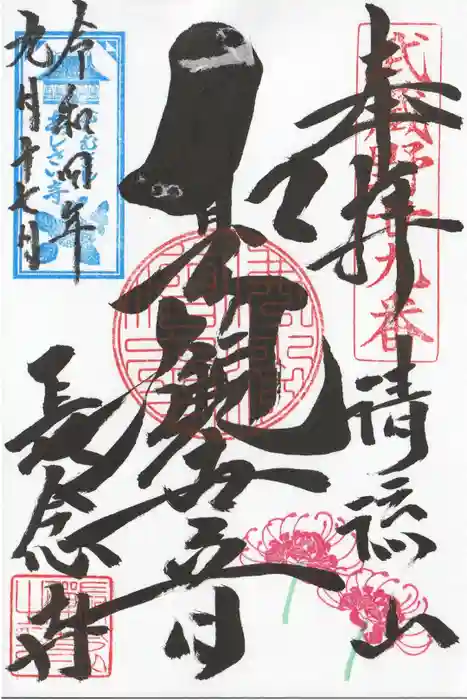 奉拝
武蔵野廿九番
清流山
聖観世音
令和四年
九月十七日
あじさい寺
長念寺